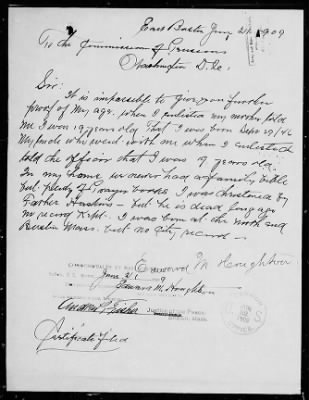 East Boston June 21 1909
To the Commission of Pensions
Washington D.C.
Sir:
It is impossible to give you further
proof of my age, when I enlisted my mother told
me I was 17 years old. That I was born Sept 29/46
My uncle who went with me when I enlisted
told the officer that I was 17 years old.
In my home we never had a family bible
but plenty of prayer books. I was christened by
Father - but he is dead long ago
no record kept. I was born at the north end
Boston Mass. but no city record —
Edward M Houghton
COMMONWEALTH OF
June 21 9
Edward M. Houghton
Justice of the Peace
Boston, Mass.
Certificate filed